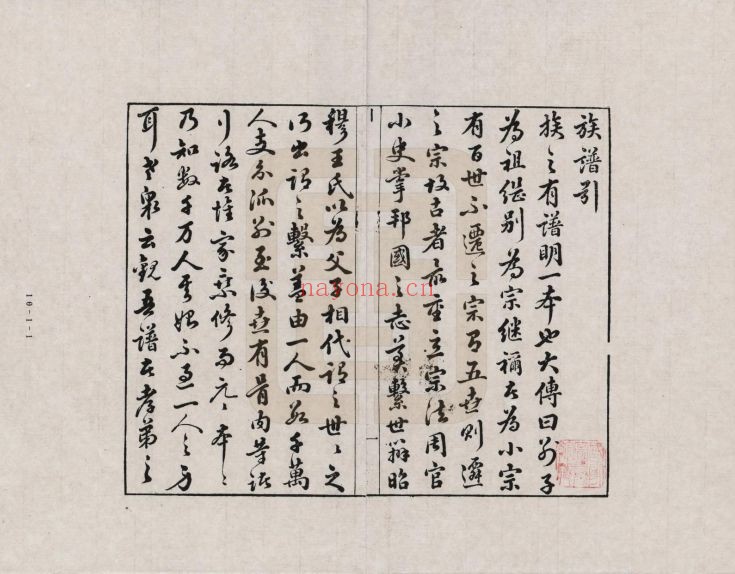 族譜引
族之有譜明一本也大傳曰別子
為祖繼別為宗继禰者為小宗
有百世不遷之宗有五世則遷
之宗故古者最重立宗法周官
小史掌邦國之志奠繫世辨昭
穆王氏以為父子相代謂之世〻之
所出謂之繫蓋由一人而数千萬
人支分派別至後世有骨肉等諸
行路者惟家乘修而元〻本〻
乃知数千万人其始不過一人之身
耳老泉云觀吾譜者孝弟之
一
nayona.cn
10-1-1